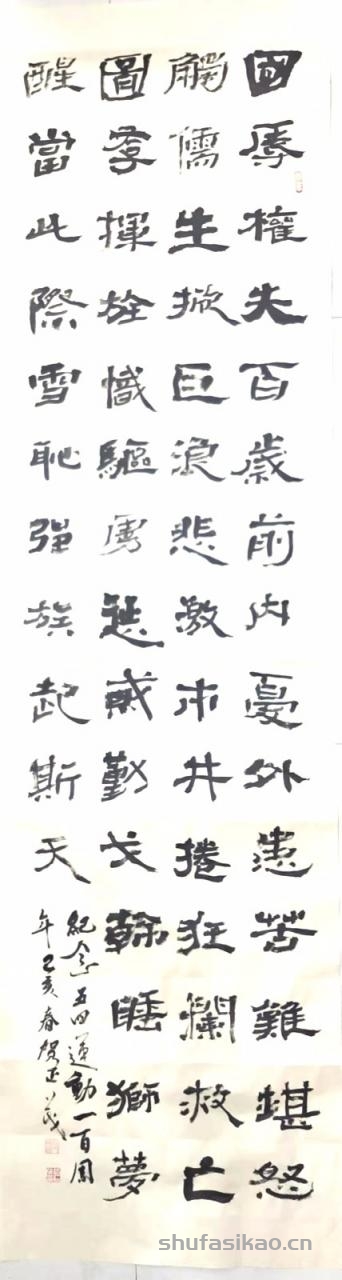 國辱權失百歲前内憂外患苦難堪怒
觸儒生掀巨浪悲激市井捲狂瀾救亡
圖存揮旌幟驅戈翰睡獅夢
醒當此際雪恥强族起斯天
紀念五四運動一百周
年己亥春賀正
shufasikao.cn